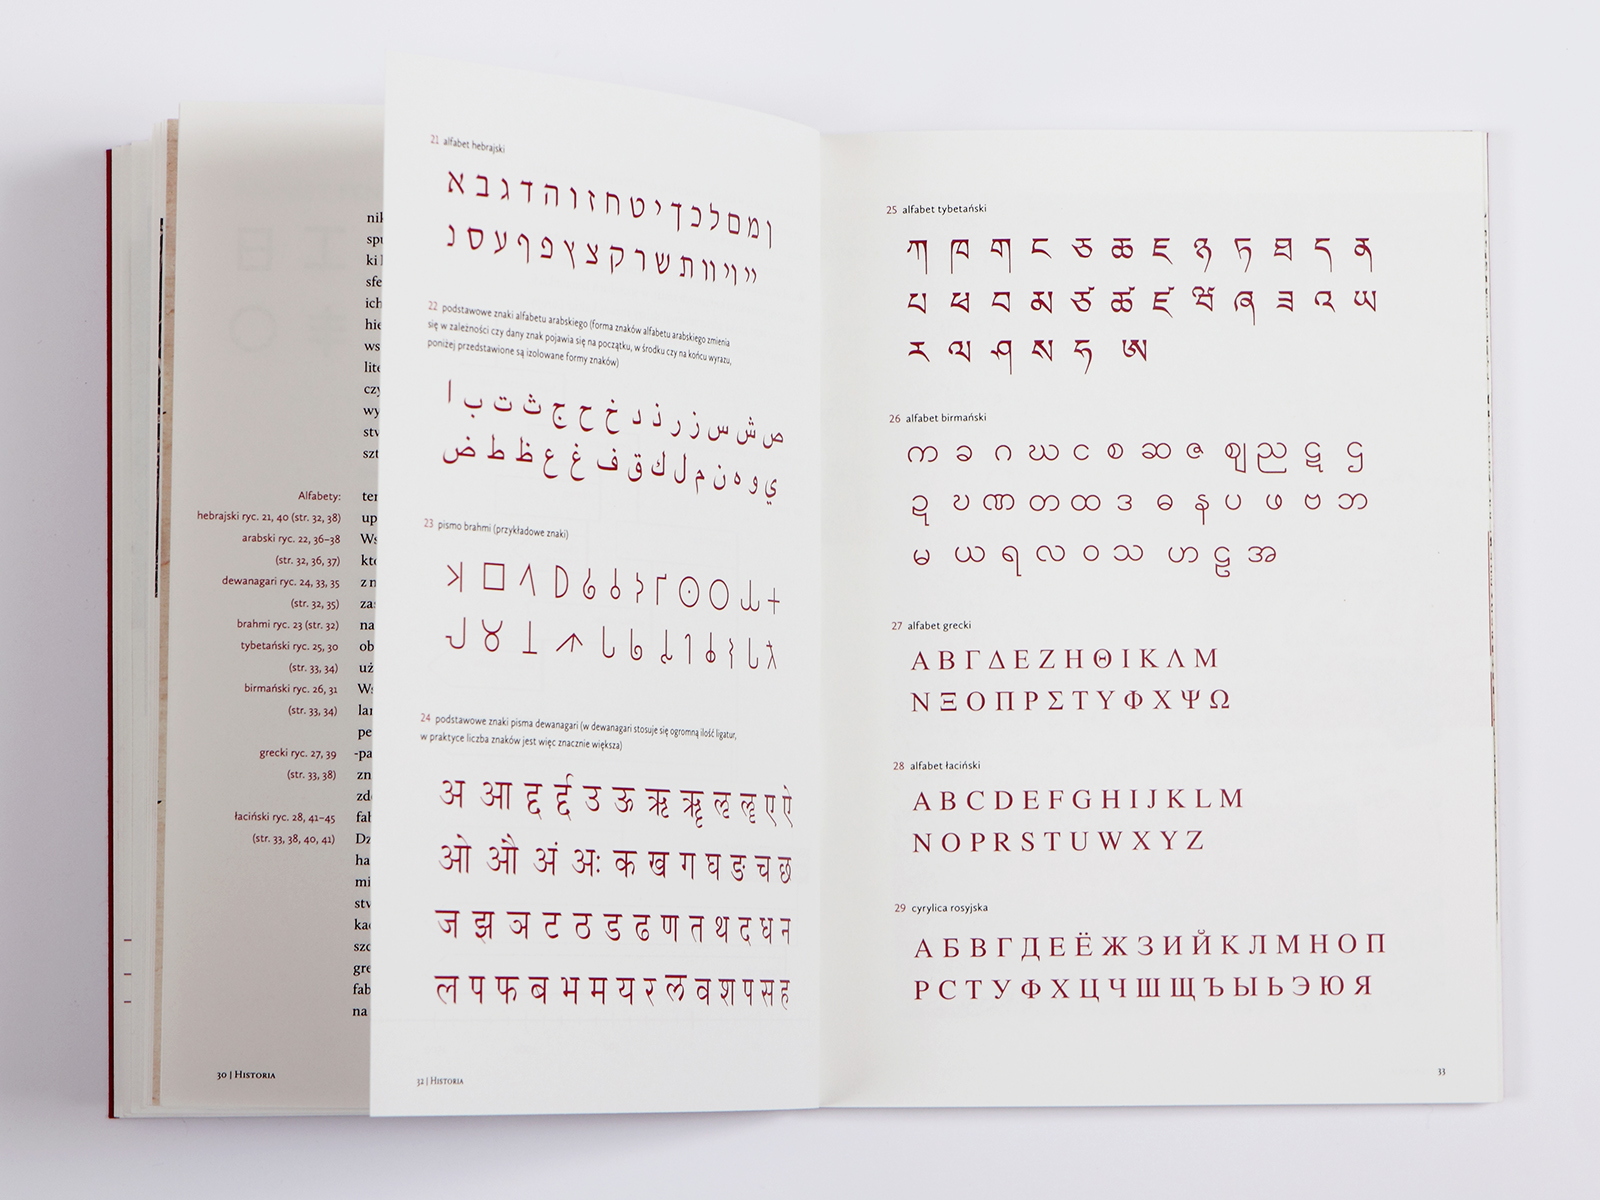 nik
spu
ki l
sfe
ich
hie
ws
lite
czy
wy
stw
szt
Alfabety:
hebrajski ryc. 21, 40 (str. 32, 38)
arabski ryc. 22, 36–38
(str. 32, 36, 37)
dewanagari ryc. 24, 33, 35
(str. 32, 35)
brahmi ryc. 23 (str. 32)
tybetański ryc. 25, 30
(str. 33, 34)
birmański ryc. 26, 31
(str. 33, 34)
grecki ryc. 27, 39
(str. 33, 38)
łaciński ryc. 28, 41–45
(str. 33, 38, 40, 41)
30 | Historia
21 alfabet hebrajski
א ב ג ד ה ו ז ח ט י ך כ ל ם מ ן
נ ס ע ף פ ץ צ ק ר ש ת װ ױ ײ
22 podstawowe znaki alfabetu arabskiego (forma znaków alfabetu arabskiego zmienia
się w zależności czy dany znak pojawia się na początku, w środku czy na końcu wyrazu,
poniżej przedstawione są izolowane formy znaków)
ا ب ت ث ج ح خ د ذ ر ز س ش ص
ض ط ظ ع غ ف ق ك ل م ن ه و ي
23 pismo brahmi (przykładowe znaki)
24 podstawowe znaki pisma dewanagari (w dewanagari stosuje się ogromną ilość ligatur,
w praktyce liczba znaków jest więc znacznie większa)
अ आ द्द र्द्द उ ऊ ऋ ॠ ऌ ॡ ए ऐ
ओ औ अं अः क ख ग घ ङ च छ
ज झ ञ ट ठ ड ढ ण त थ द ध न
ल प फ ब भ म य र ल व श प स ह
32 | Historia
25 alfabet tybetański
ཀ ཁ ག ང ཅ ཆ ཇ ཉ ཏ ཐ ད ན
པ ཕ བ མ ཙ ཚ ཛ ཝ ཞ ཟ འ ཡ
ར ལ ཤ ས ཧ ཨ
26 alfabet birmański
က ခ ဂ ဃ င စ ဆ ဇ ဈ ည ဋ ဌ
ဍ ဎ ဏ တ ထ ဒ ဓ န ပ ဖ ဗ ဘ
မ ယ ရ လ ဝ သ ဟ ဠ အ
27 alfabet grecki
Α Β Γ Δ Ε Ζ Η Θ Ι Κ Λ Μ
Ν Ξ Ο Π Ρ Σ Τ Υ Φ Χ Ψ Ω
28 alfabet łaciński
A B C D E F G H I J K L M
N O P R S T U W X Y Z
29 cyrylica rosyjska
А Б В Г Д Е Ё Ж З И Й К Л М Н О П
Р С Т У Ф Х Ц Ч Ш Щ Ъ Ы Ь Э Ю Я
33